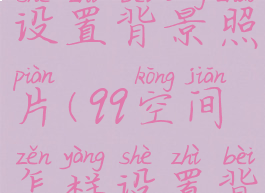 设置背景照
piàn kōng jiān
片(99空间
zěn yàng shè zhì bèi
怎样设置背